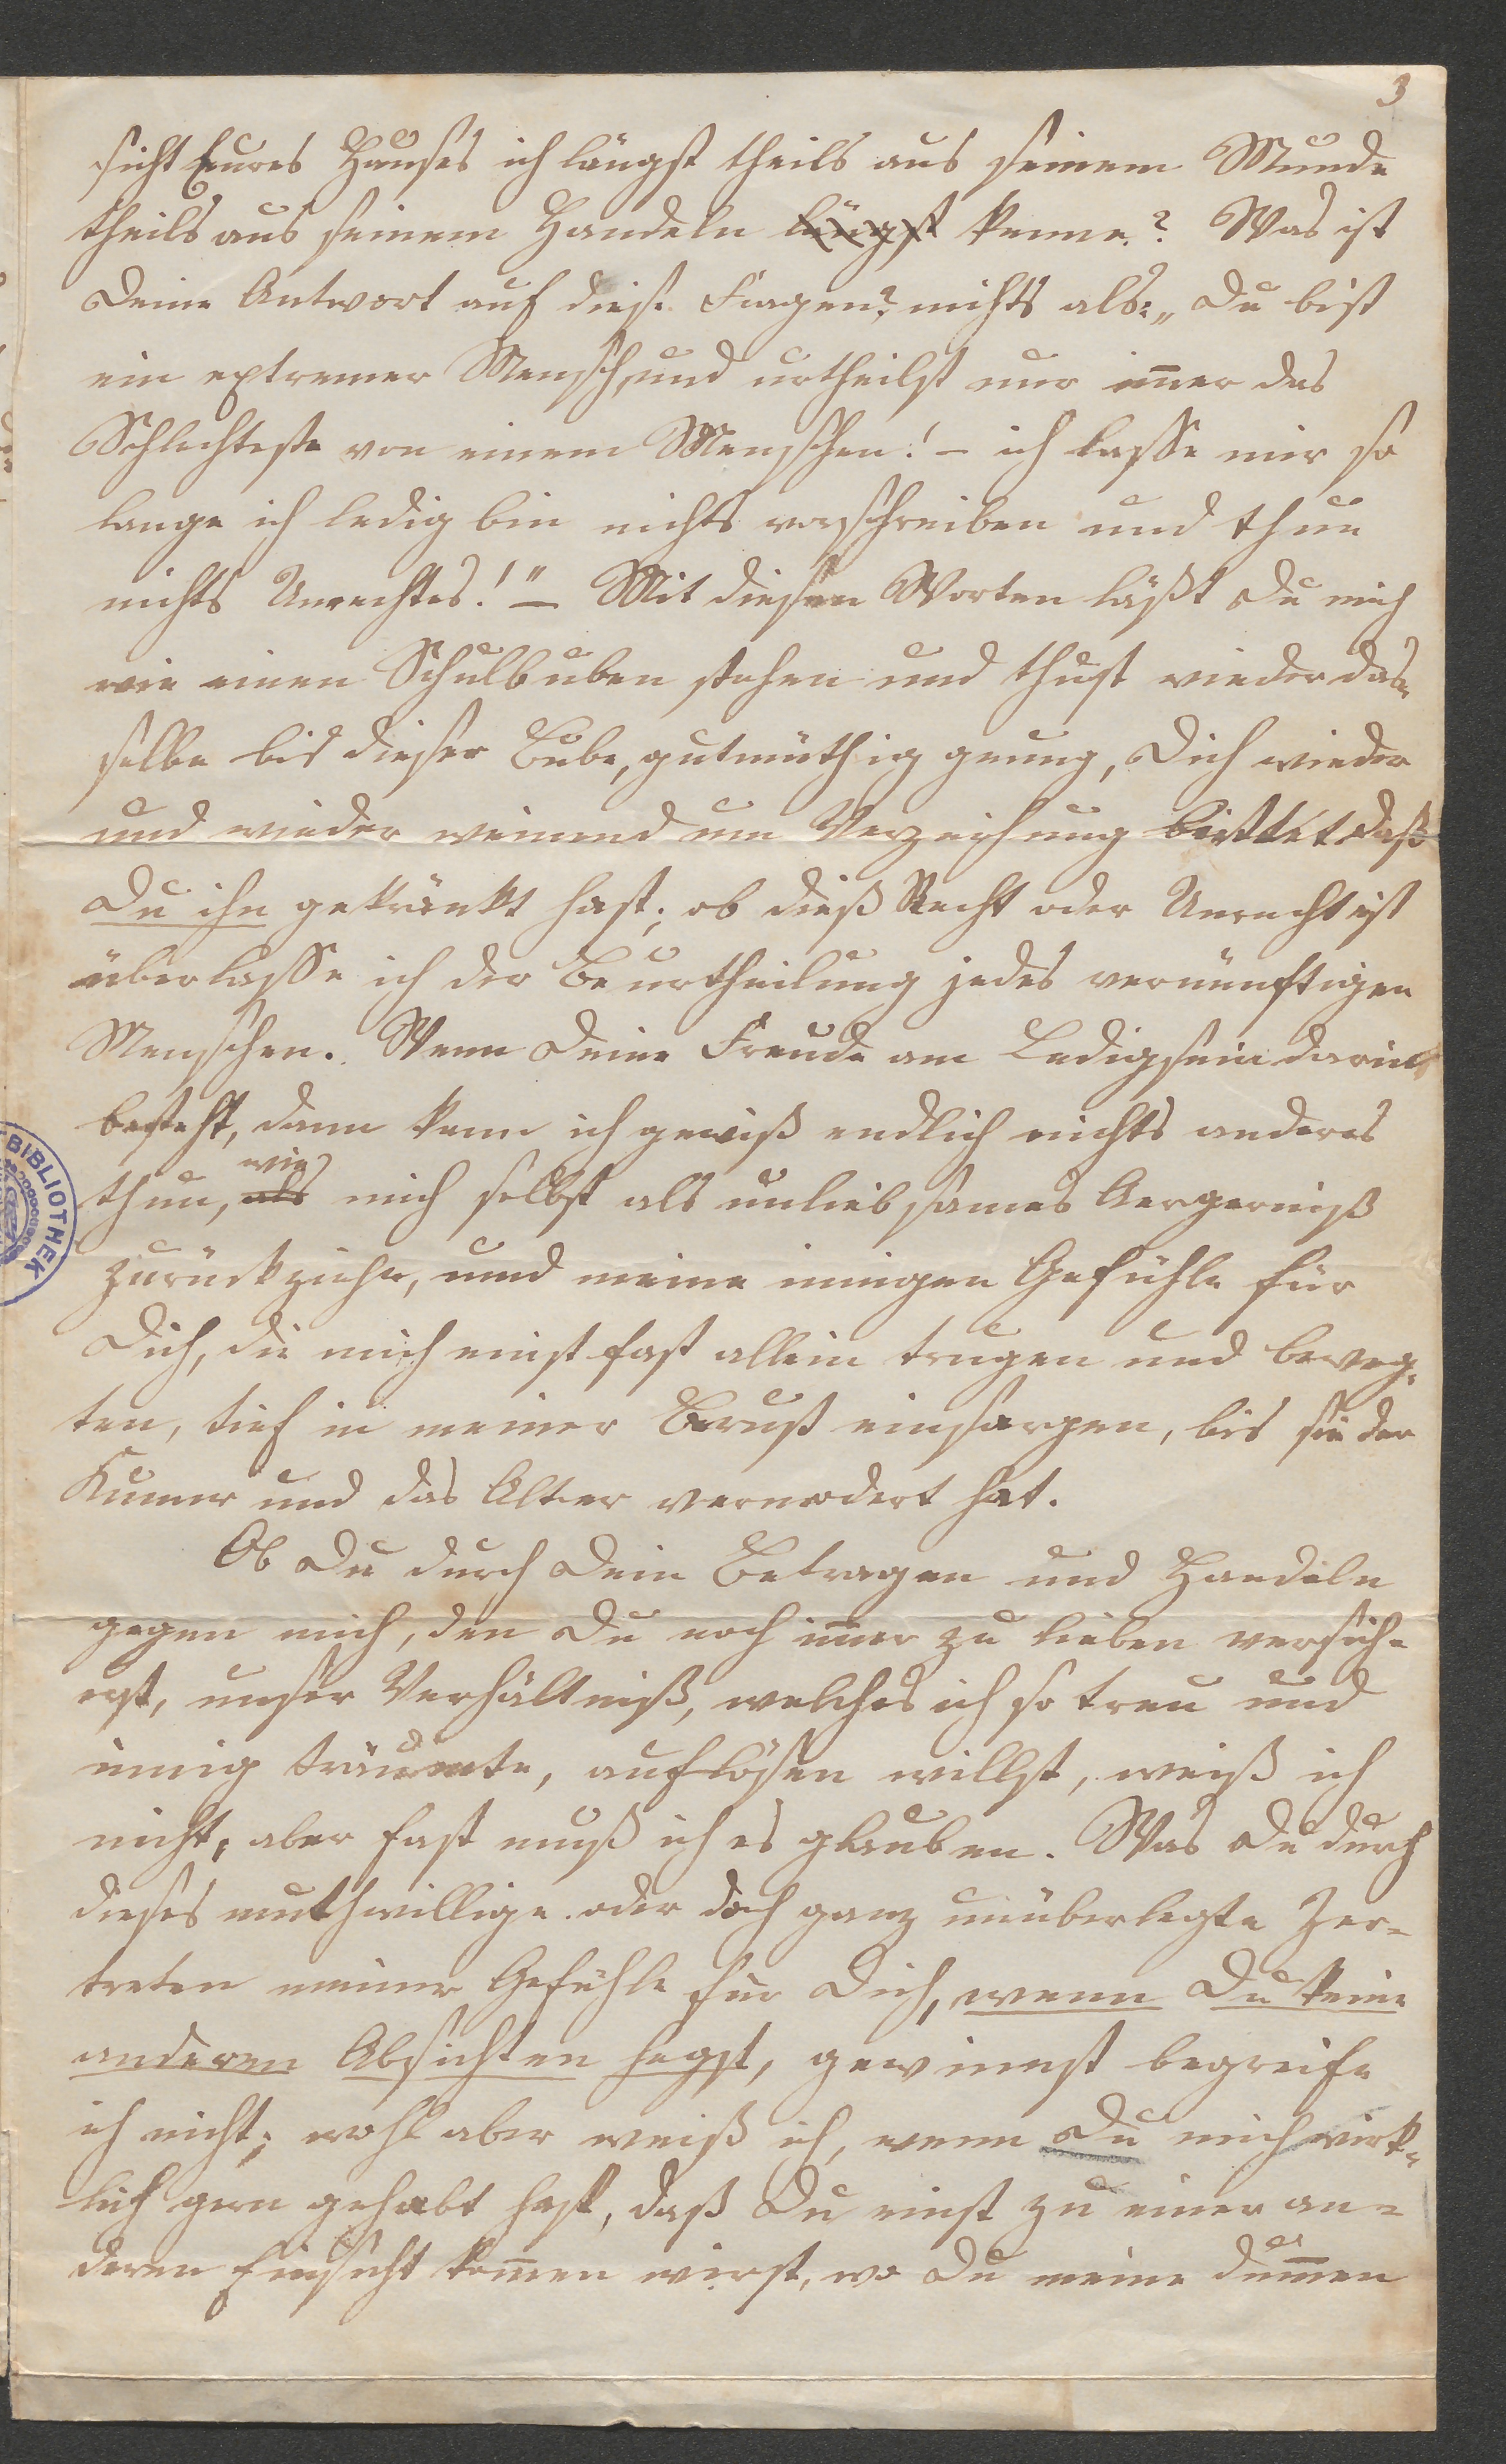 3
sicht Eures Hauses ich längst theils aus seinem Munde
theils aus seinem Handeln längst kenne? Was ist
Deine Antwort auf diese Fragen? nichts als: „Du bist
ein extremer Mensch, und urtheilst nur im̄er das
Schlechteste von einem Menschen! – ich lasse mir so
lange ich ledig bin nichts vorschreiben und thue
nichts Unrechtes!" – Mit diesen Worten läßt Du mich
wie einen Schulbuben stehen und thust wieder das-
selbe bis dieser Bube, gutmüthig genug, Dich wieder
und wieder weinend um Verzeihung bittet daß
Du ihn gekränkt hast; ob dieß Recht oder Unrecht ist
überlasse ich der Beurtheilung jedes vernünftigen
Menschen. Wenn Deine Freude am Ledigsein darin
besteht, dann kann ich gewiß endlich nichts anderes
thun, als wie mich selbst als unliebsames Aergerniß
zurückziehe, und meine innigen Gefühle für
Dich, die mich einst fast allein trugen und beweg-
ten, tief in meiner Brust einsargen, bis sie der
Kummer und das Alter vermodert hat.
Ob Du durch Dein Betragen und Handeln
gegen mich, den Du noch im̄er zu lieben versich-
erst, unser Verhältniß, welches ich so treu und
innig träumte, auflösen willst, weiß ich
nicht, aber fast muß ich es glauben. Was Du durch
dieses muthwillige oder doch ganz unüberlegte Zer-
treten meiner Gefühle für Dich, wenn Du keine
anderen Absichten hegst, gewinnst begreife
ich nicht; wohl aber weiß ich, wenn Du mich wirk-
lich gern gehabt hast, daß Du einst zu einer an-
deren Einsicht kom̄en wirst, wo Du meine dum̄en
BIBLIOTHEK